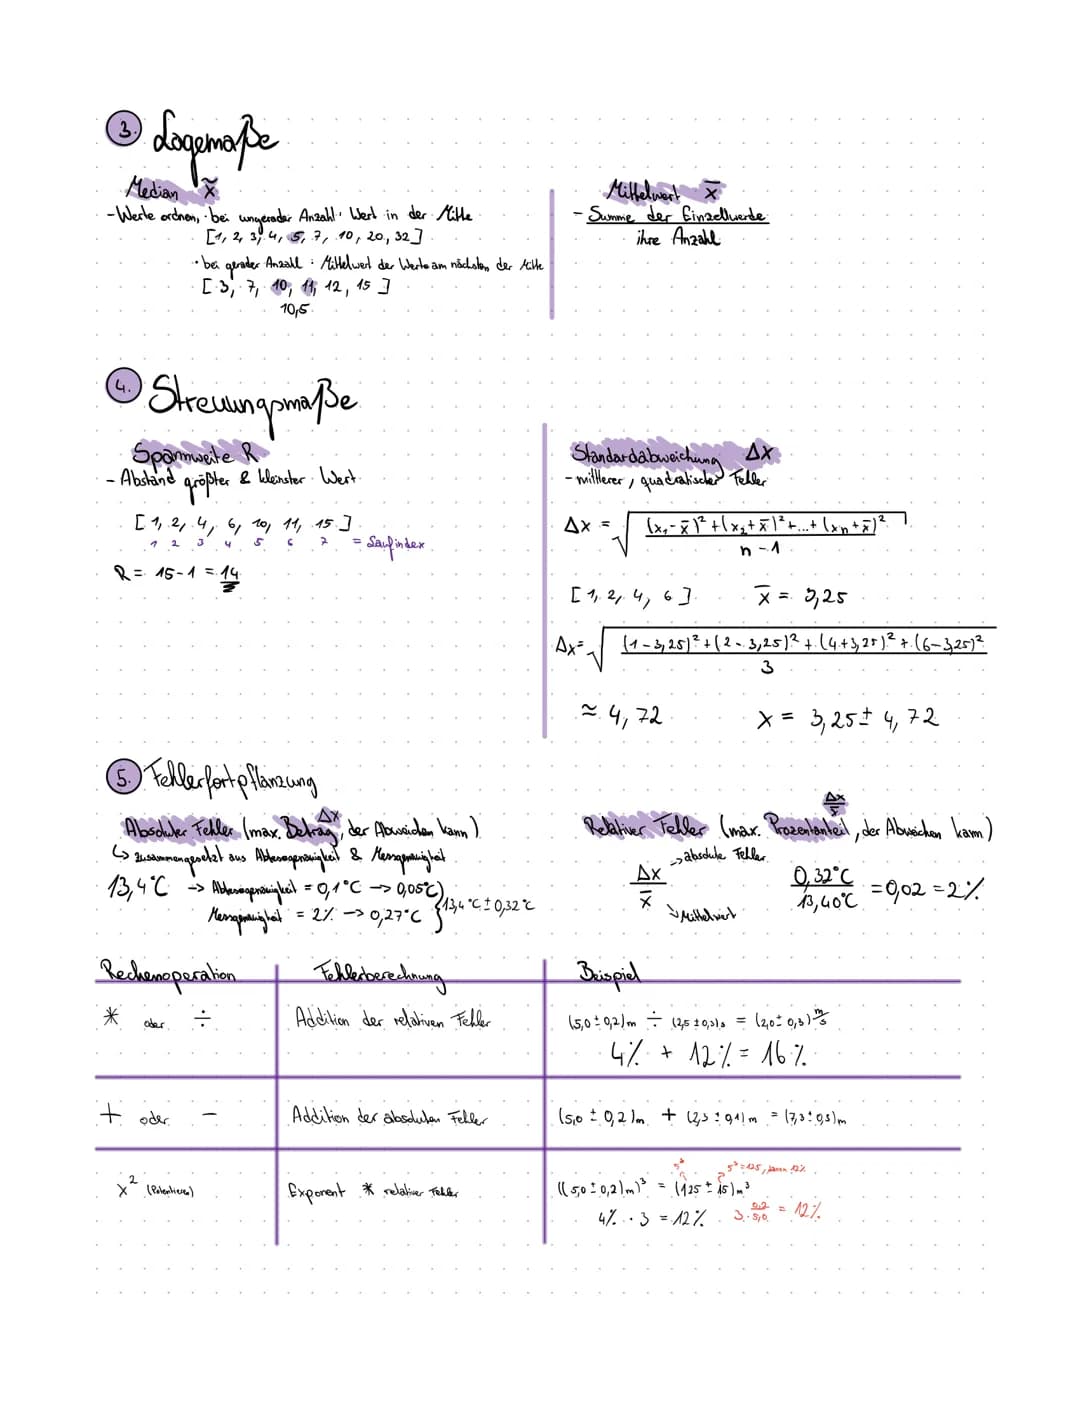 3. Lagemaße
Median x̃
- Werte ordnen, · bei ungerader Anzahl: Wert in der Mitte
[1, 2, 3, 4, 5, 7, 10, 20, 32]
· bei gerader Anzahl: Mittelwert der Werte am nächsten der Mitte
[3, 7, 10, 11, 12, 15]
10,5
Mittelwert x̄
- Summe der Einzelwerte
ihre Anzahl
4. Streuungsmaße
Spannweite R
- Abstand größter & kleinster Wert
[1, 2, 4, 6, 10, 11, 15]
1 2 3 4 5 6 7 = Laufindex
R = 15-1 = 14
Standardabweichung Δx
- mittlerer, quadratischer Fehler
Δx = √((x₁-x̄)²+(x₂+x̄)²+...+(xn+x̄)²
n-1
[1, 2, 4, 6] x̄ = 3,25
Δx= √((1-3,25)²+(2-3,25)²+(4+3,25)²+(6-3,25)²
3
≈ 4,72 x = 3,25 ± 4,72
5. Fehlerfortpflanzung
Absoluter Fehler (max. Betrag, der Abweichen kann) Δx
↳ zusammengesetzt aus Ablesegenauigkeit & Messgenauigkeit
13,4°C → Ablesegenauigkeit = 0,1°C → 0,05°C
Messgenauigkeit = 2% → 0,27°C } 13,4°C ± 0,32°C
Δx
Relativer Fehler (max. Prozentanteil, der Abweichen kann)
→ absolute Fehler
Δx
x̄
↘ Mittelwert
0,32°C
13,40°C = 0,02 = 2%
Rechenoperation Fehlerberechnung Beispiel
* oder ÷ Addition der relativen Fehler (5,0 ± 0,2)m ÷ (2,5 ± 0,3)s = (2,0 ± 0,3) m/s
4% + 12% = 16%
+ oder − Addition der absoluten Fehler (5,0 ± 0,2)m + (2,3 ± 0,1)m = (7,3 ± 0,3)m
5³ 5³=125, davon 12%
x² (Potenzieren) Exponent * relativer Fehler ((5,0 ± 0,2)m)³ = (125 ± 15)m³
4% · 3 = 12% 3 · 0,2/5,0 = 12%